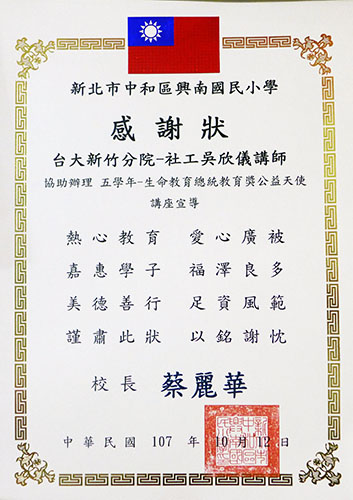 新北市中和區興南國民小學
感謝狀
台大新竹分院-社工吳欣儀講師
協助辦理 五學年-生命教育總統教育獎公益天使
講座宣導
熱心教育 愛心廣被
嘉惠學子 福澤良多
美德善行 足資風範
謹肅此狀 以銘謝忱
校長 蔡麗華
中華民國 107 年 10 月 12 日